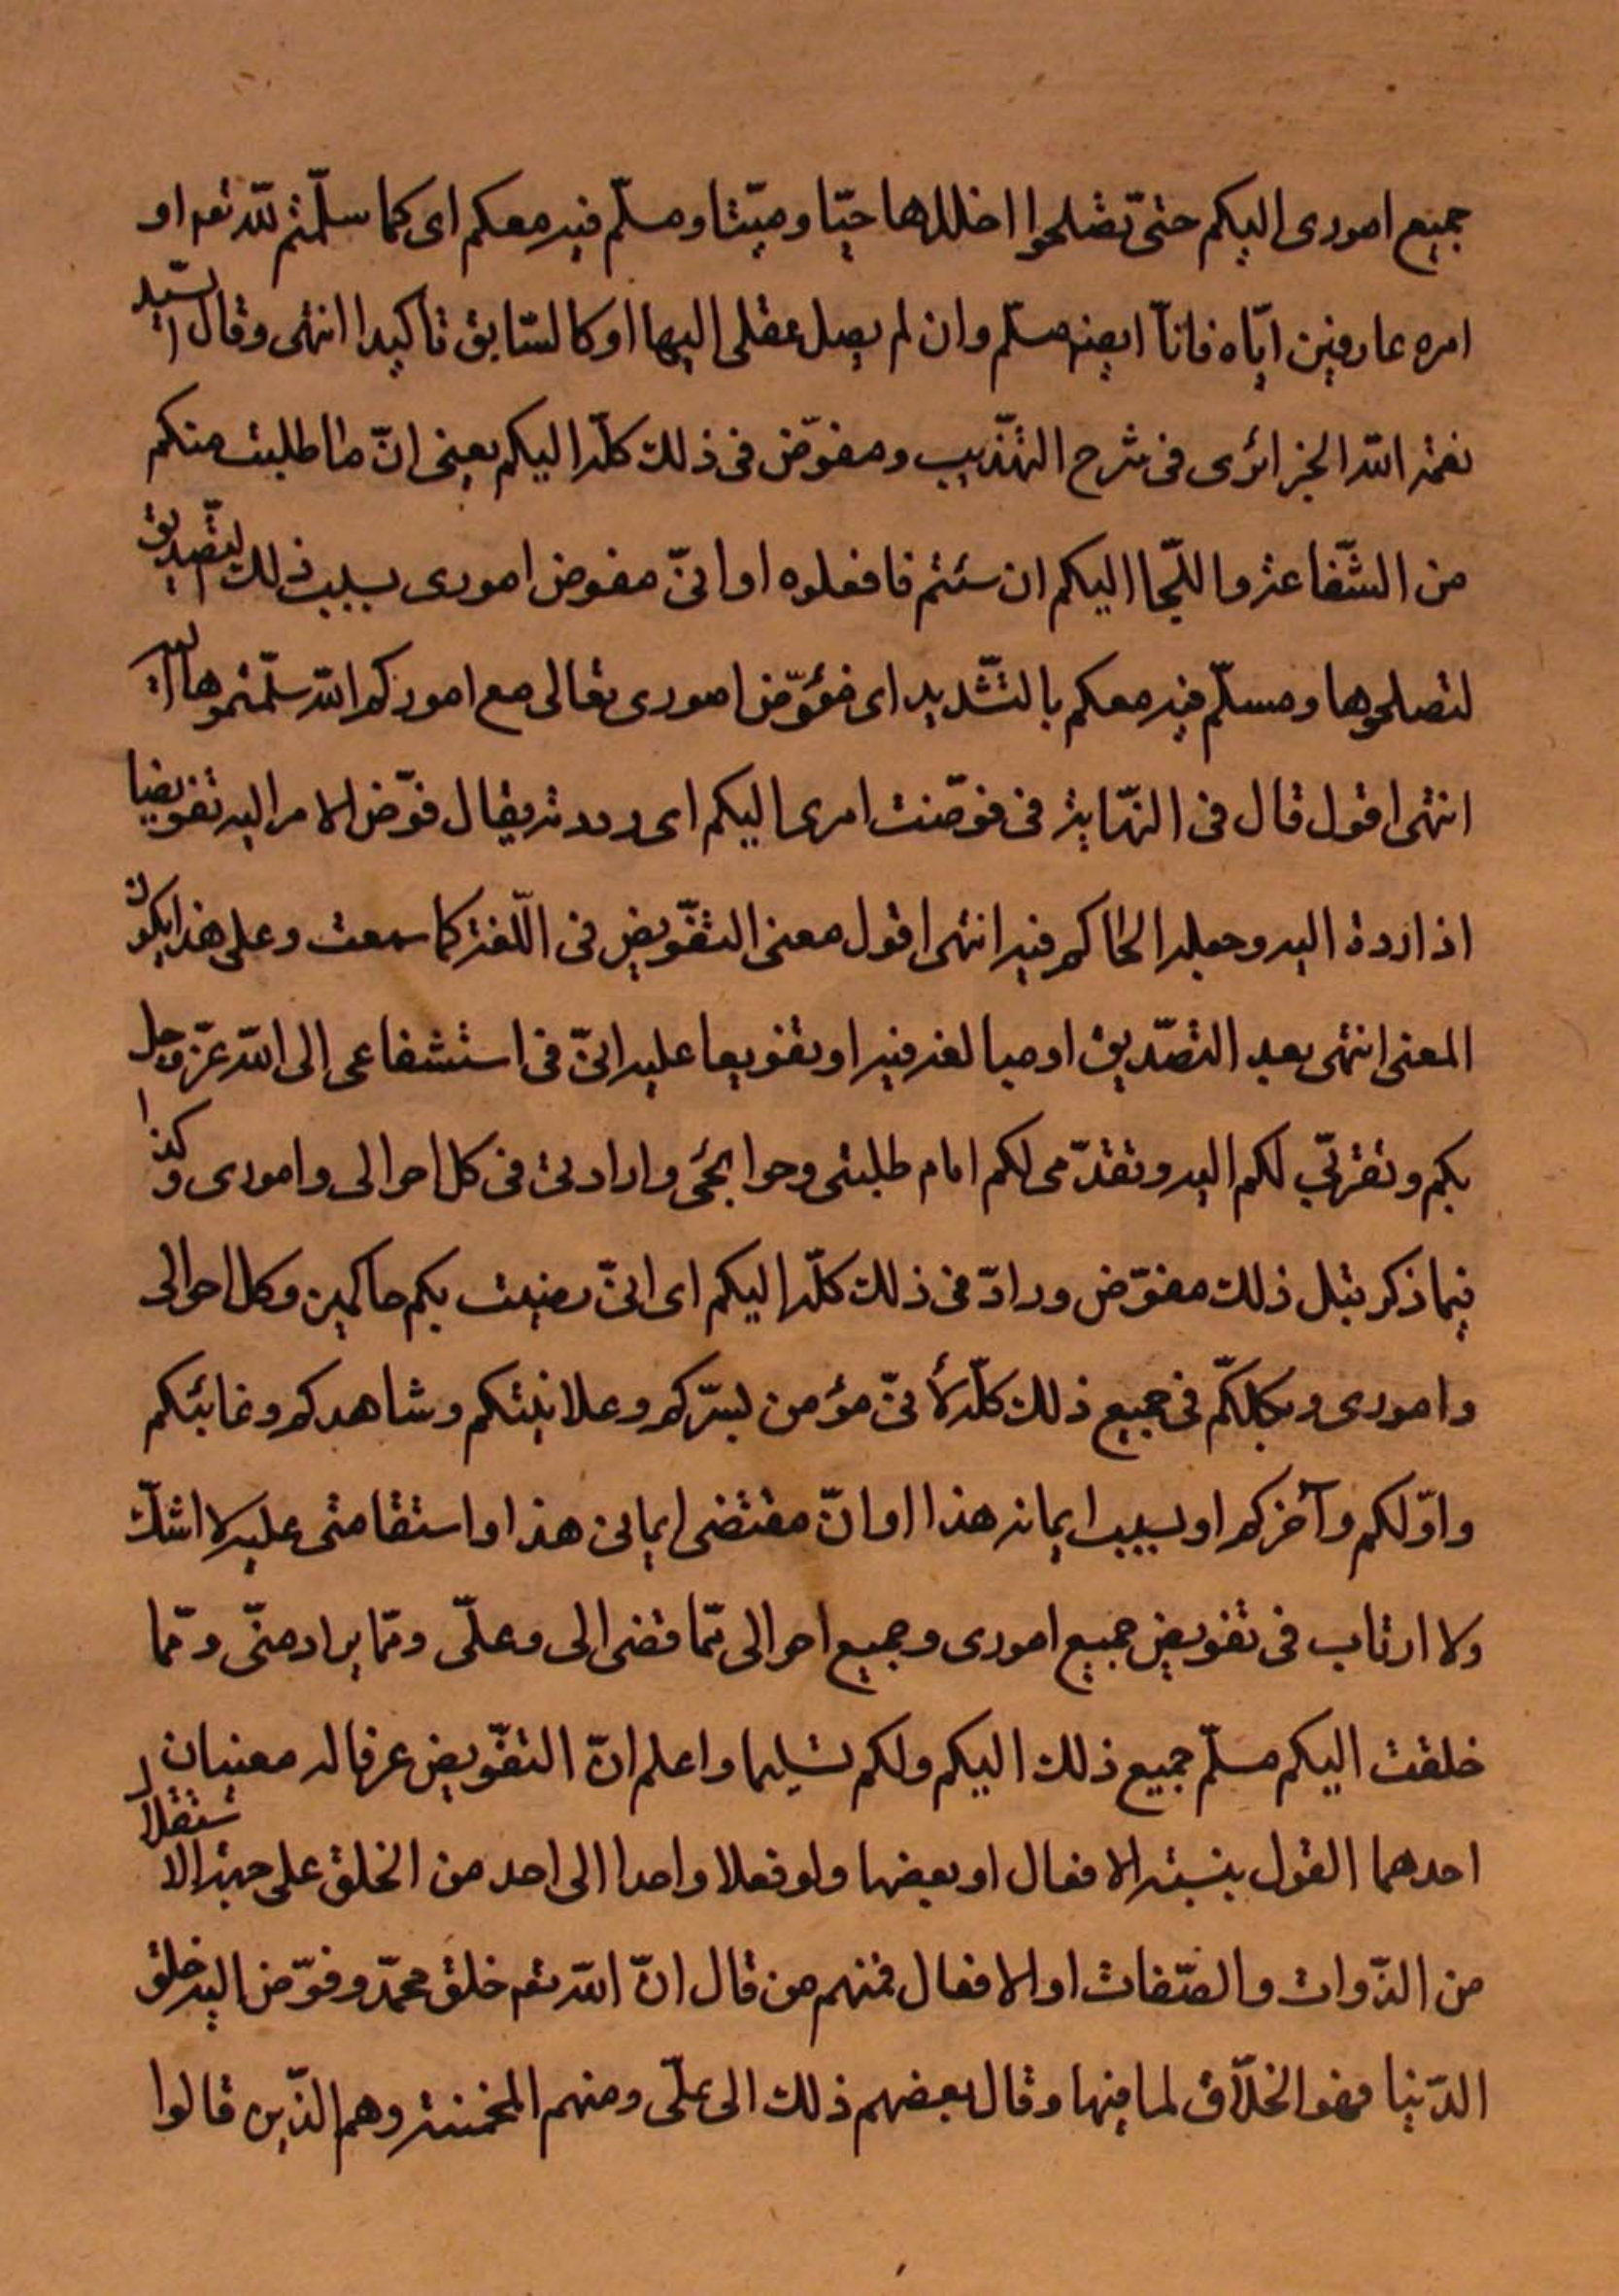 جميع امورى اليكم حتى تصلحوا اخللها حيّا وميّتا ومسلّم فيه معكم اى كما سلّمتم للّه تعم او
امره عارفين ايّاه فانا ايضم مسلّم وان لم يصل عقلى اليها او كالسّابق تاكيدا انتهى وقال السّيد
نعمة اللّه الجزائرى فى شرح التهّذيب ومفوّض فى ذلك كلّه اليكم يعنى انّ ما طلبت منكم
من الشّفاعة واللّجا اليكم ان شئتم فافعلوه او انىّ مفوض امورى بسبب ذلك التّصديق
لتصلحوها ومسلّم فيه معكم بالتشّديد اى مفوّض امورى تعالى مع اموركم اللّه سلّمتموها اليه
انتهى اقول قال فى النهّاية فى فوضّت امرى اليكم اى رددته يقال فوّض الامر اليه تفويضا
اذا ردة اليه وجعله الحاكم فيه انتهى اقول معنى التفّويض فى اللّغة كما سمعت وعلى هذا يكون
المعنى انتهى بعد التصّديق او مبالغة فيه او تفويعا عليه انىّ فى استشفاعى الى اللّه عزّ وجل
بكم وتقربّى لكم اليه وتقدّمى لكم امام طلبتى وحوايجى وارادتى فى كل احوالى وامورى وكذا
فيما ذكر قبل ذلك مفوّض ورادّ فى ذلك كلّه اليكم اى انىّ رضيت بكم حاكمين وكل احوالى
وامورى وبكلكمّ فى جميع ذلك كلّه لأنىّ مؤمن بسرّكم وعلانيتكم وشاهدكم وغائبكم
واوّلكم وآخركم او بسبب ايمانه هذا او انّ مقتضى ايمانى هذا واستقامتى عليه لا اشكّ
ولا ارتاب فى تفويض جميع امورى وجميع احوالى ممّا قضى الى وعلىّ وممّا يراد منّى وممّا
خلقت اليكم مسلّم جميع ذلك اليكم ولكم تسليما واعلم انّ التفّويض عرفا له معنيان
احدهما القول بنسبة الافعال او بعضها ولو فعلا واحدا الى احد من الخلق على جهة الاستقلال
من الذّوات والصّفات او الافعال فمنهم من قال انّ اللّه تعم خلق محمّد وفوّض اليه خلق
الدّنيا فهو الخلاّق لما فيها وقال بعضهم ذلك الى علىّ ومنهم المخمنة وهم الذّين قالوا